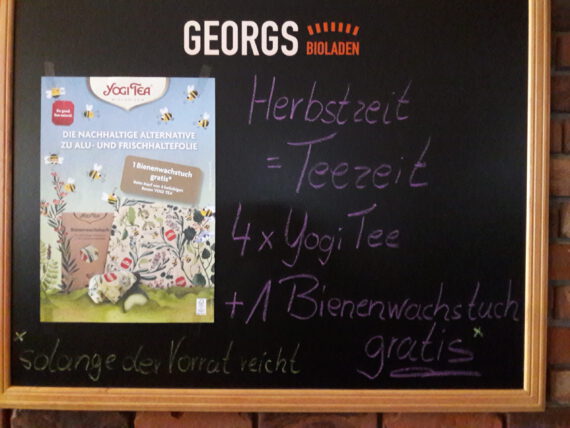 GEORGS BIOLADEN
YOGI TEA
DIE NACHHALTIGE ALTERNATIVE
ZU ALU- UND FRISCHHALTEFOLIE
1 Bienenwachstuch
gratis*
Bienenwachstuch
Herbstzeit
= Teezeit
4 x Yogi Tee
+ 1 Bienenwachstuch
gratis*
* Solange der Vorrat reicht